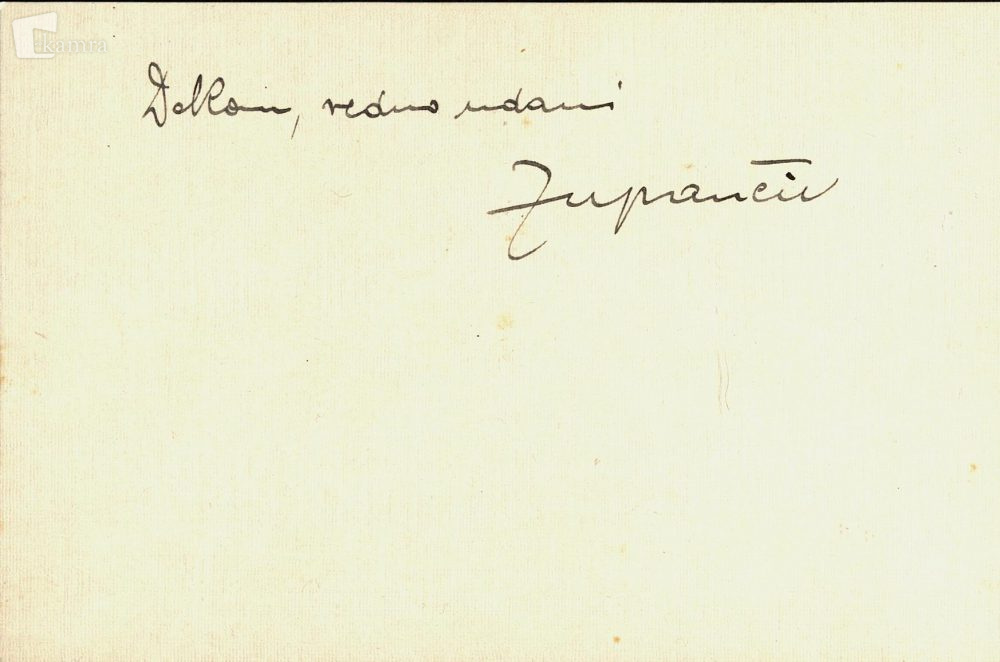 kamra
vedno udani
Župančič